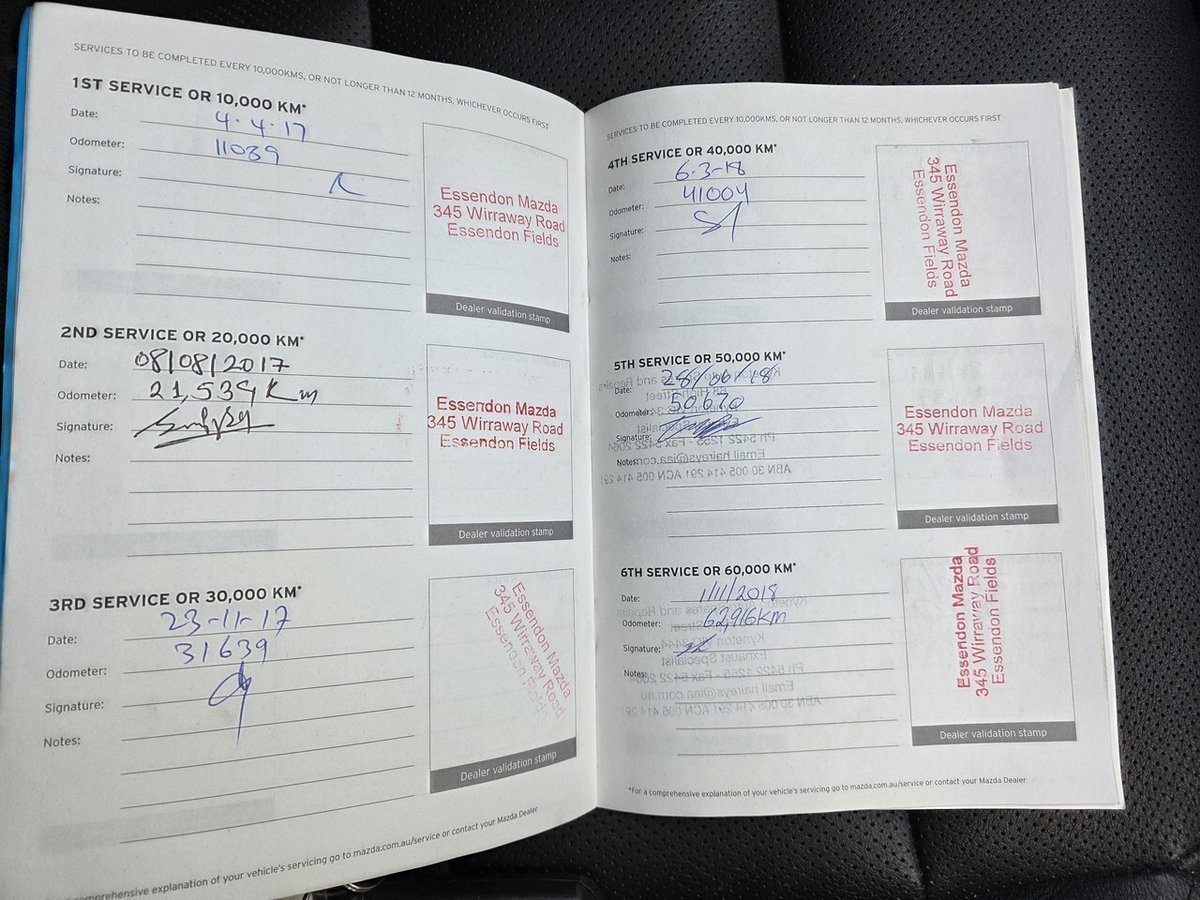 SERVICES TO BE COMPLETED EVERY 10,000KMS, OR NOT LONGER THAN 12 MONTHS, WHICHEVER OCCURS FIRST
1ST SERVICE OR 10,000 KM*
Date: 4.4.17
Odometer: 11039
Signature:
Notes:
Essendon Mazda
345 Wirraway Road
Essendon Fields
Dealer validation stamp
2ND SERVICE OR 20,000 KM*
Date: 08/08/2017
Odometer: 21,539 Km
Signature:
Notes:
Essendon Mazda
345 Wirraway Road
Essendon Fields
Dealer validation stamp
3RD SERVICE OR 30,000 KM*
Date: 23-11-17
Odometer: 31639
Signature:
Notes:
Essendon Mazda
345 Wirraway Road
Essendon Fields
Dealer validation stamp
comprehensive explanation of your vehicle's servicing go to mazda.com.au/service or contact your Mazda Dealer
SERVICES TO BE COMPLETED EVERY 10,000KMS, OR NOT LONGER THAN 12 MONTHS, WHICHEVER OCCURS FIRST
4TH SERVICE OR 40,000 KM*
Date: 6-3-18
Odometer: 41004
Signature:
Notes:
Essendon Mazda
345 Wirraway Road
Essendon Fields
Dealer validation stamp
5TH SERVICE OR 50,000 KM*
Date: 28/06/18
Odometer: 50670
Signature:
Notes:
Essendon Mazda
345 Wirraway Road
Essendon Fields
Dealer validation stamp
6TH SERVICE OR 60,000 KM*
Date: 1/11/2018
Odometer: 62,916KM
Signature:
Notes:
Essendon Mazda
345 Wirraway Road
Essendon Fields
Dealer validation stamp
*For a comprehensive explanation of your vehicle's servicing go to mazda.com.au/service or contact your Mazda Dealer